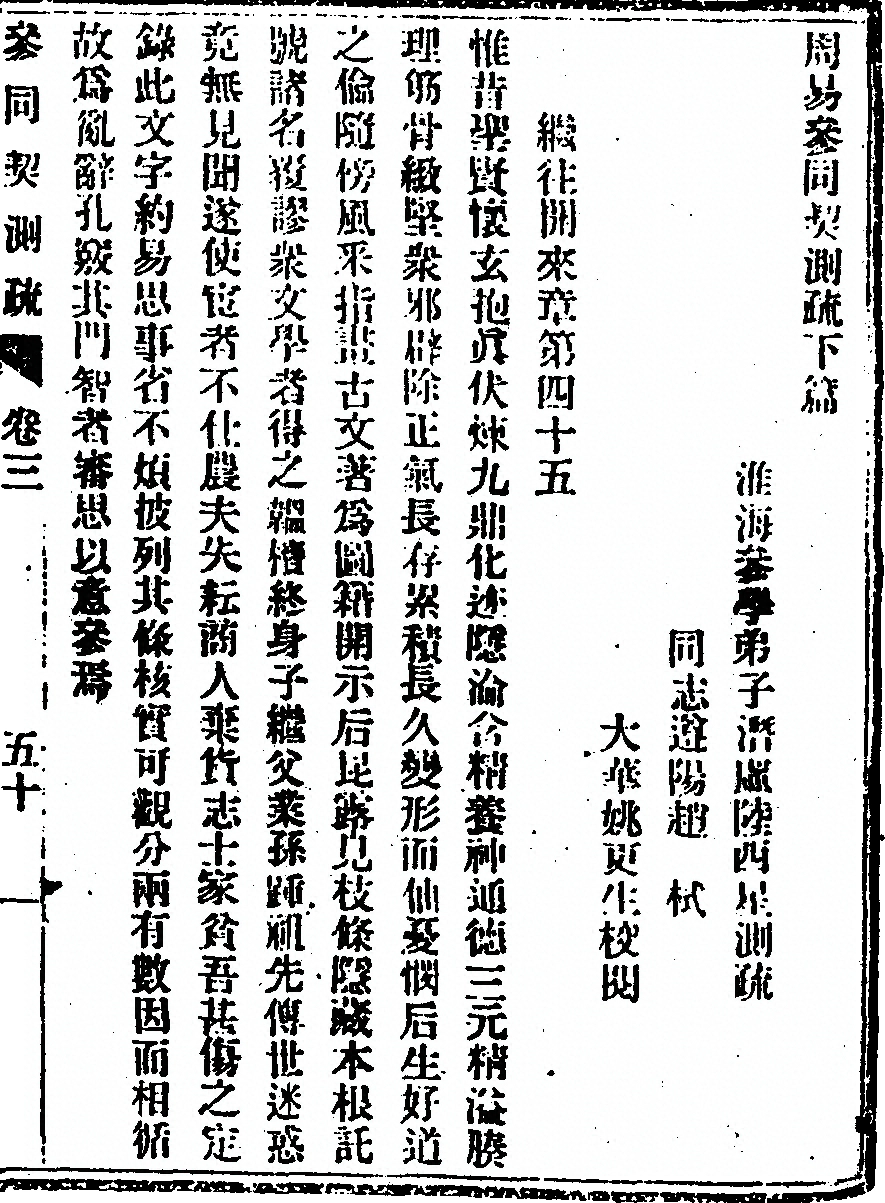 周易參同契測疏下篇
淮海參學弟子潛虛陸西星測疏
同志遼陽趙栻
大華姚更生校閱
繼往開來章第四十五
惟昔聖賢懷玄抱眞伏煉九鼎化迹隱淪含精養神通德三元精溢腠
理筋骨緻堅衆邪辟除正氣長存累積長久變形而仙憂憫后生好道
之倫隨傍風采指畫古文著爲圖籍開示后昆露見枝條隱藏本根託
號諸名覆謬衆文學者得之韞櫝終身子繼父業孫踵祖先傳世迷惑
竟無見聞遂使宦者不仕農夫失耘商人棄貨志士家貧吾甚傷之定
錄此文字約易思事省不煩披列其條核實可觀分兩有數因而相循
故爲亂辭孔竅其門智者審思以意參焉
參同契測疏 卷三 五十一